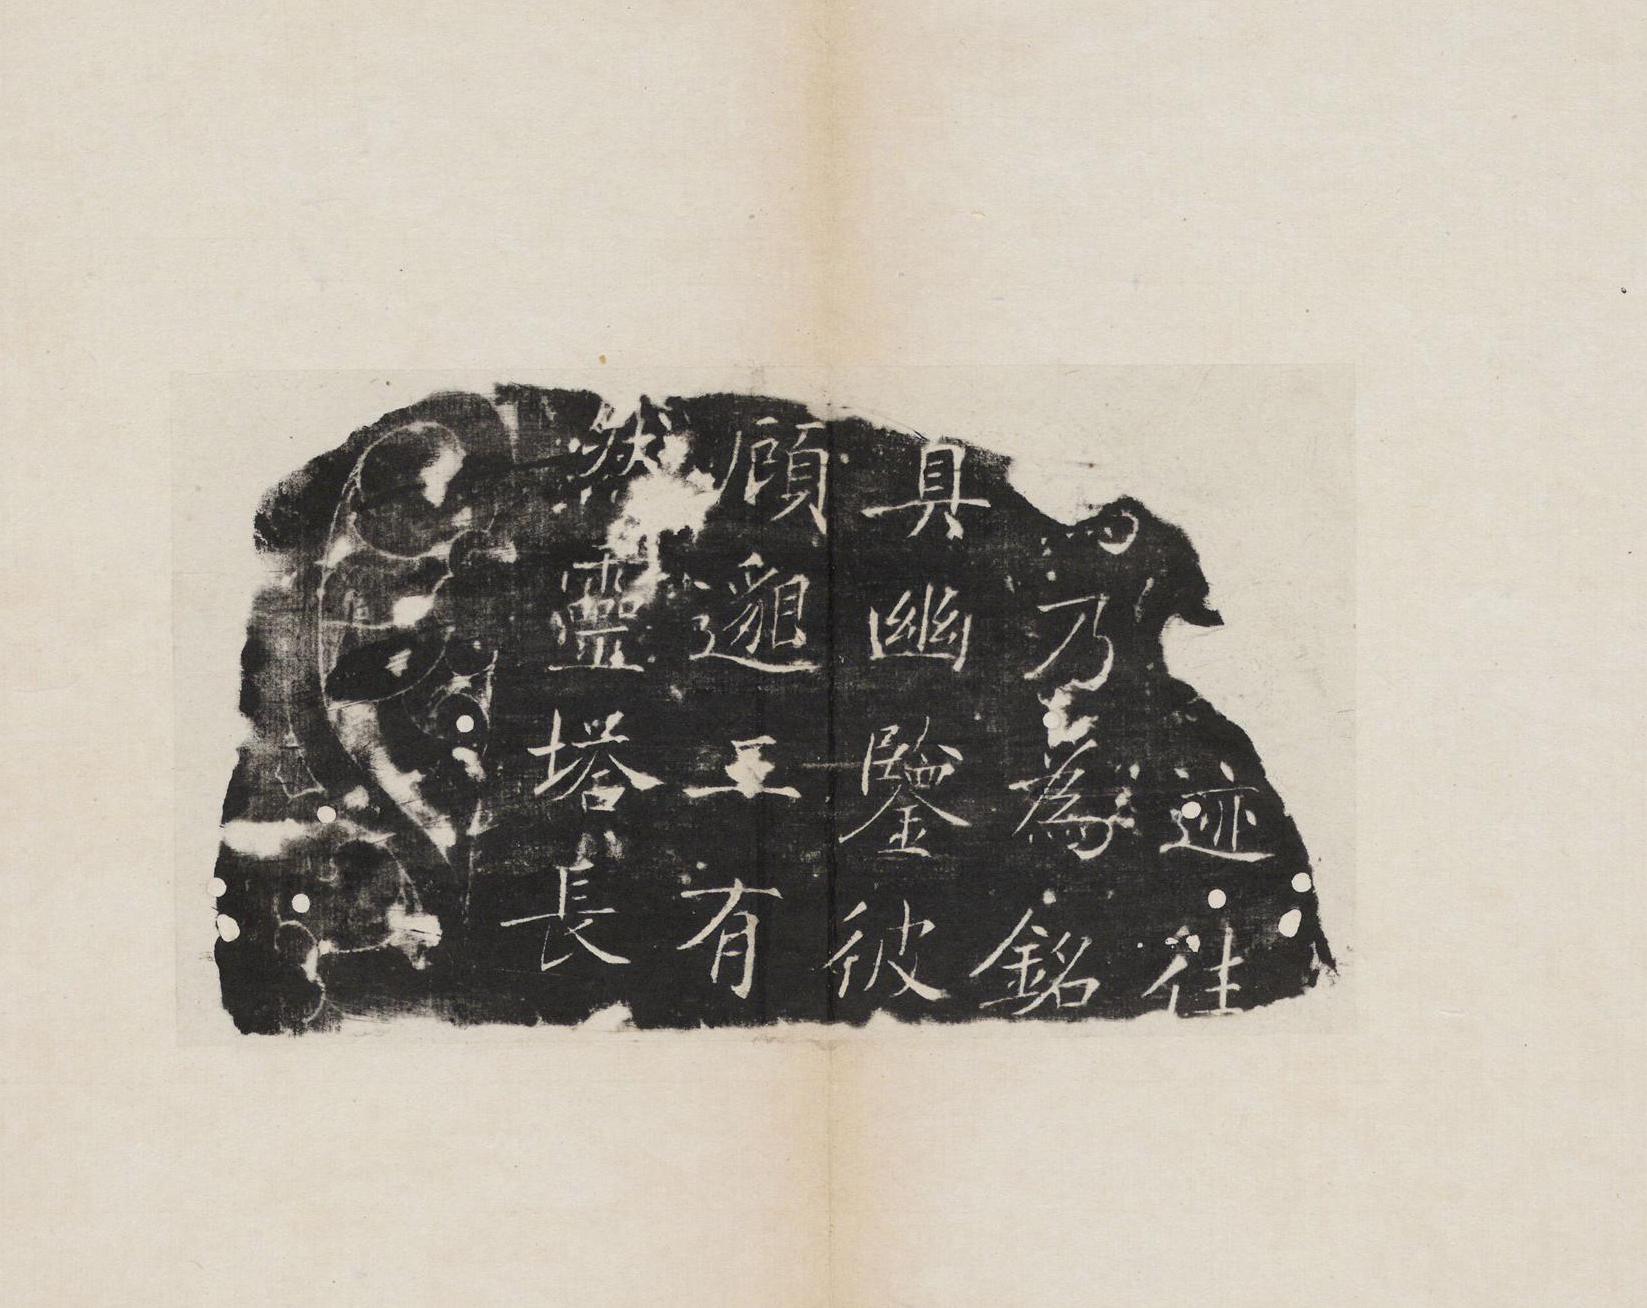 迹往
乃為銘
具幽鑒彼
顧邈工有
然靈塔長